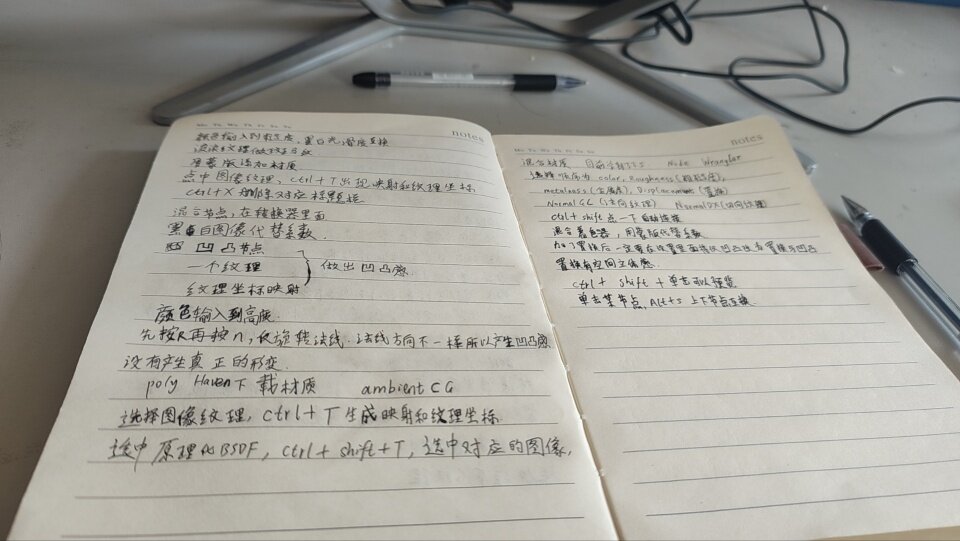 Mo Tu We Th Fr Sa Su
notes
颜色输入到粗糙度，黑白光滑度互换
用蒙版添加材质
点中图像纹理，ctrl+T出现映射和纹理坐标
ctrl+X删除对应标题框
混合节点，在转换器里面
黑白图像代替系数.
凹凸节点
一个纹理
做出凹凸感
纹理坐标映射
颜色输入到高度.
先按R再按n，仅旋转法线.法线方向不一样所以产生凹凸感
没有产生真正的形变.
poly Haven下载材质 ambient CG
选择图像纹理，ctrl+T生成映射和纹理坐标
选中原理化BSDF，ctrl+shift+T，选中对应的图像，
Mo Tu We Th Fr Sa Su
notes
混合材质 Node Wrangler
选择 color, Roughness(粗糙度),
metalness(金属度), Displacement(置换)
NormalGL(法向纹理) NormalDX(法向纹理)
ctrl+shift点一下自动连接
混合着色器，用蒙版代替系数
加了置换后一定要在设置里面
置换有空间立体感.
ctrl+shift+单击可以预览
单击某节点，Alt+s上下节点互换.